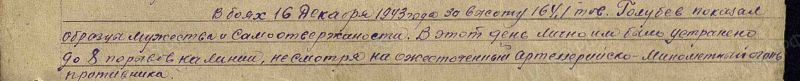 В боях 16 декабря 1943 года за высоту 164,1 тов. Голубев показал
образцы мужества и самоотверженности. В этот день лично им было устранено
до 8 порывов на линии, несмотря на ожесточенный артеллерийско-минометный огонь
противника.